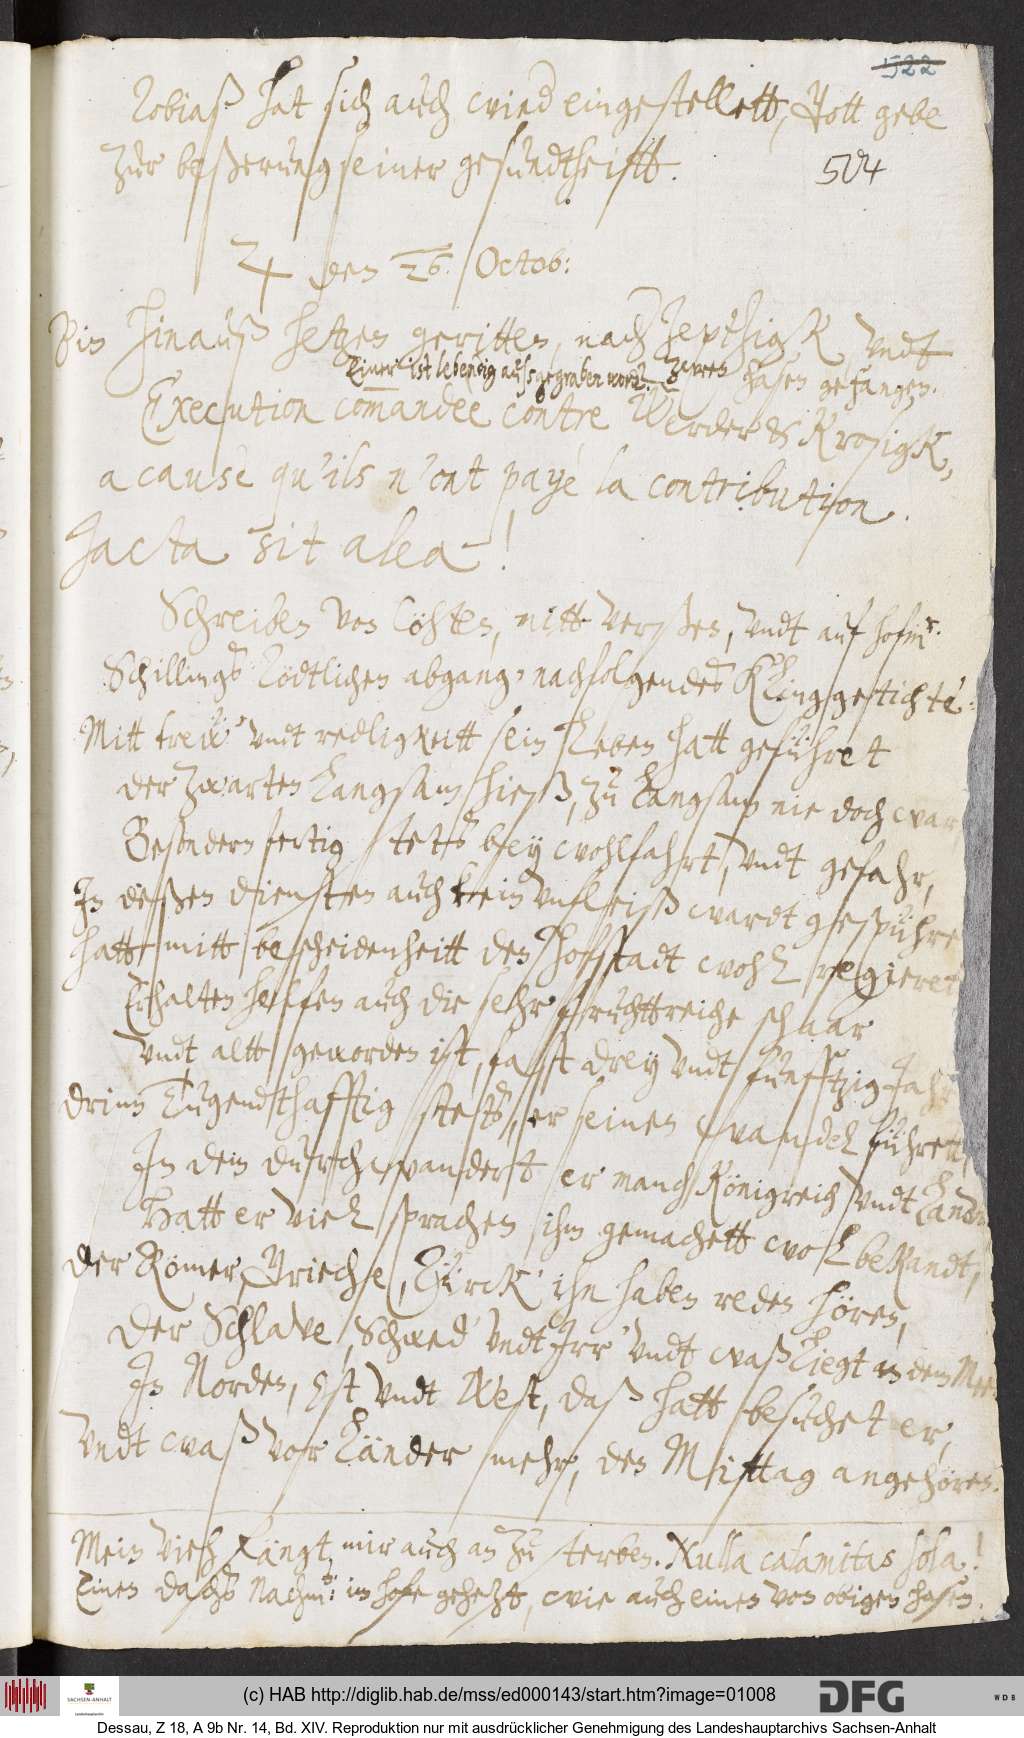 522
Tobiaß hat sich auch wied eingestellett, Gott gebe
zur beßerung seiner gesundtheitt.
504
♃ den 26. Octob:
Bin hinauß hetzen geritten, nach Zepthigk vndt
Einer ist lebendig aufsgegraben word. zween hasen gefangen.
Execution comandee contre Werder & Krosigk,
a cause qu'ils n'ont payè la contribution.
Jacta sit alea!
Schreiben von Cöhten, mitt verßen, vndt auf hofmr.
Schillings Tödtlichen abgang, nachfolgendes Klinggetichte:
Mitt trew' vndt redligkeitt sein Leben hatt geführet
der zwarten Langsam hieß, zu Langsam nie doch war
Besondern fertig stets bey wohlfahrt, vndt gefahr,
In deßen diensten auch kein vnfleiß wardt gespühre
hatt mitt bescheidenheitt den hofstadt wohl regieret
Erhalten helffen auch die sehr fruchttreiche schaar
vndt altt geworden ist, fast drey vndt funfftzig Jahr
drinn Tugendthafftig stets, er seinen wandel führett,
In dem durchwandert er manch Königreich vndt Landt
Hatt er viel sprachen ihm gemachett wol bekandt,
Der Römer, Grieche, Türck' ihn haben reden hören,
Der Schlave, Schwed' vndt Irr' vndt waß Liegt an dem Mee
In Norden, Ost vndt West, daß hatt besuchet er,
Vndt waß vor Länder mehr, den Mittag angehören.
Mein vieh fängt mir auch an zu sterben. Nulla calamitas sola!
Einen dachs Nachm: im hofe gehetzt, wie auch einen von obigen hasen.
(c) HAB http://diglib.hab.de/mss/ed000143/start.htm?image=01008
SACHSEN-ANHALT
DFG
WDB
Dessau, Z 18, A 9b Nr. 14, Bd. XIV. Reproduktion nur mit ausdrücklicher Genehmigung des Landeshauptarchivs Sachsen-Anhalt